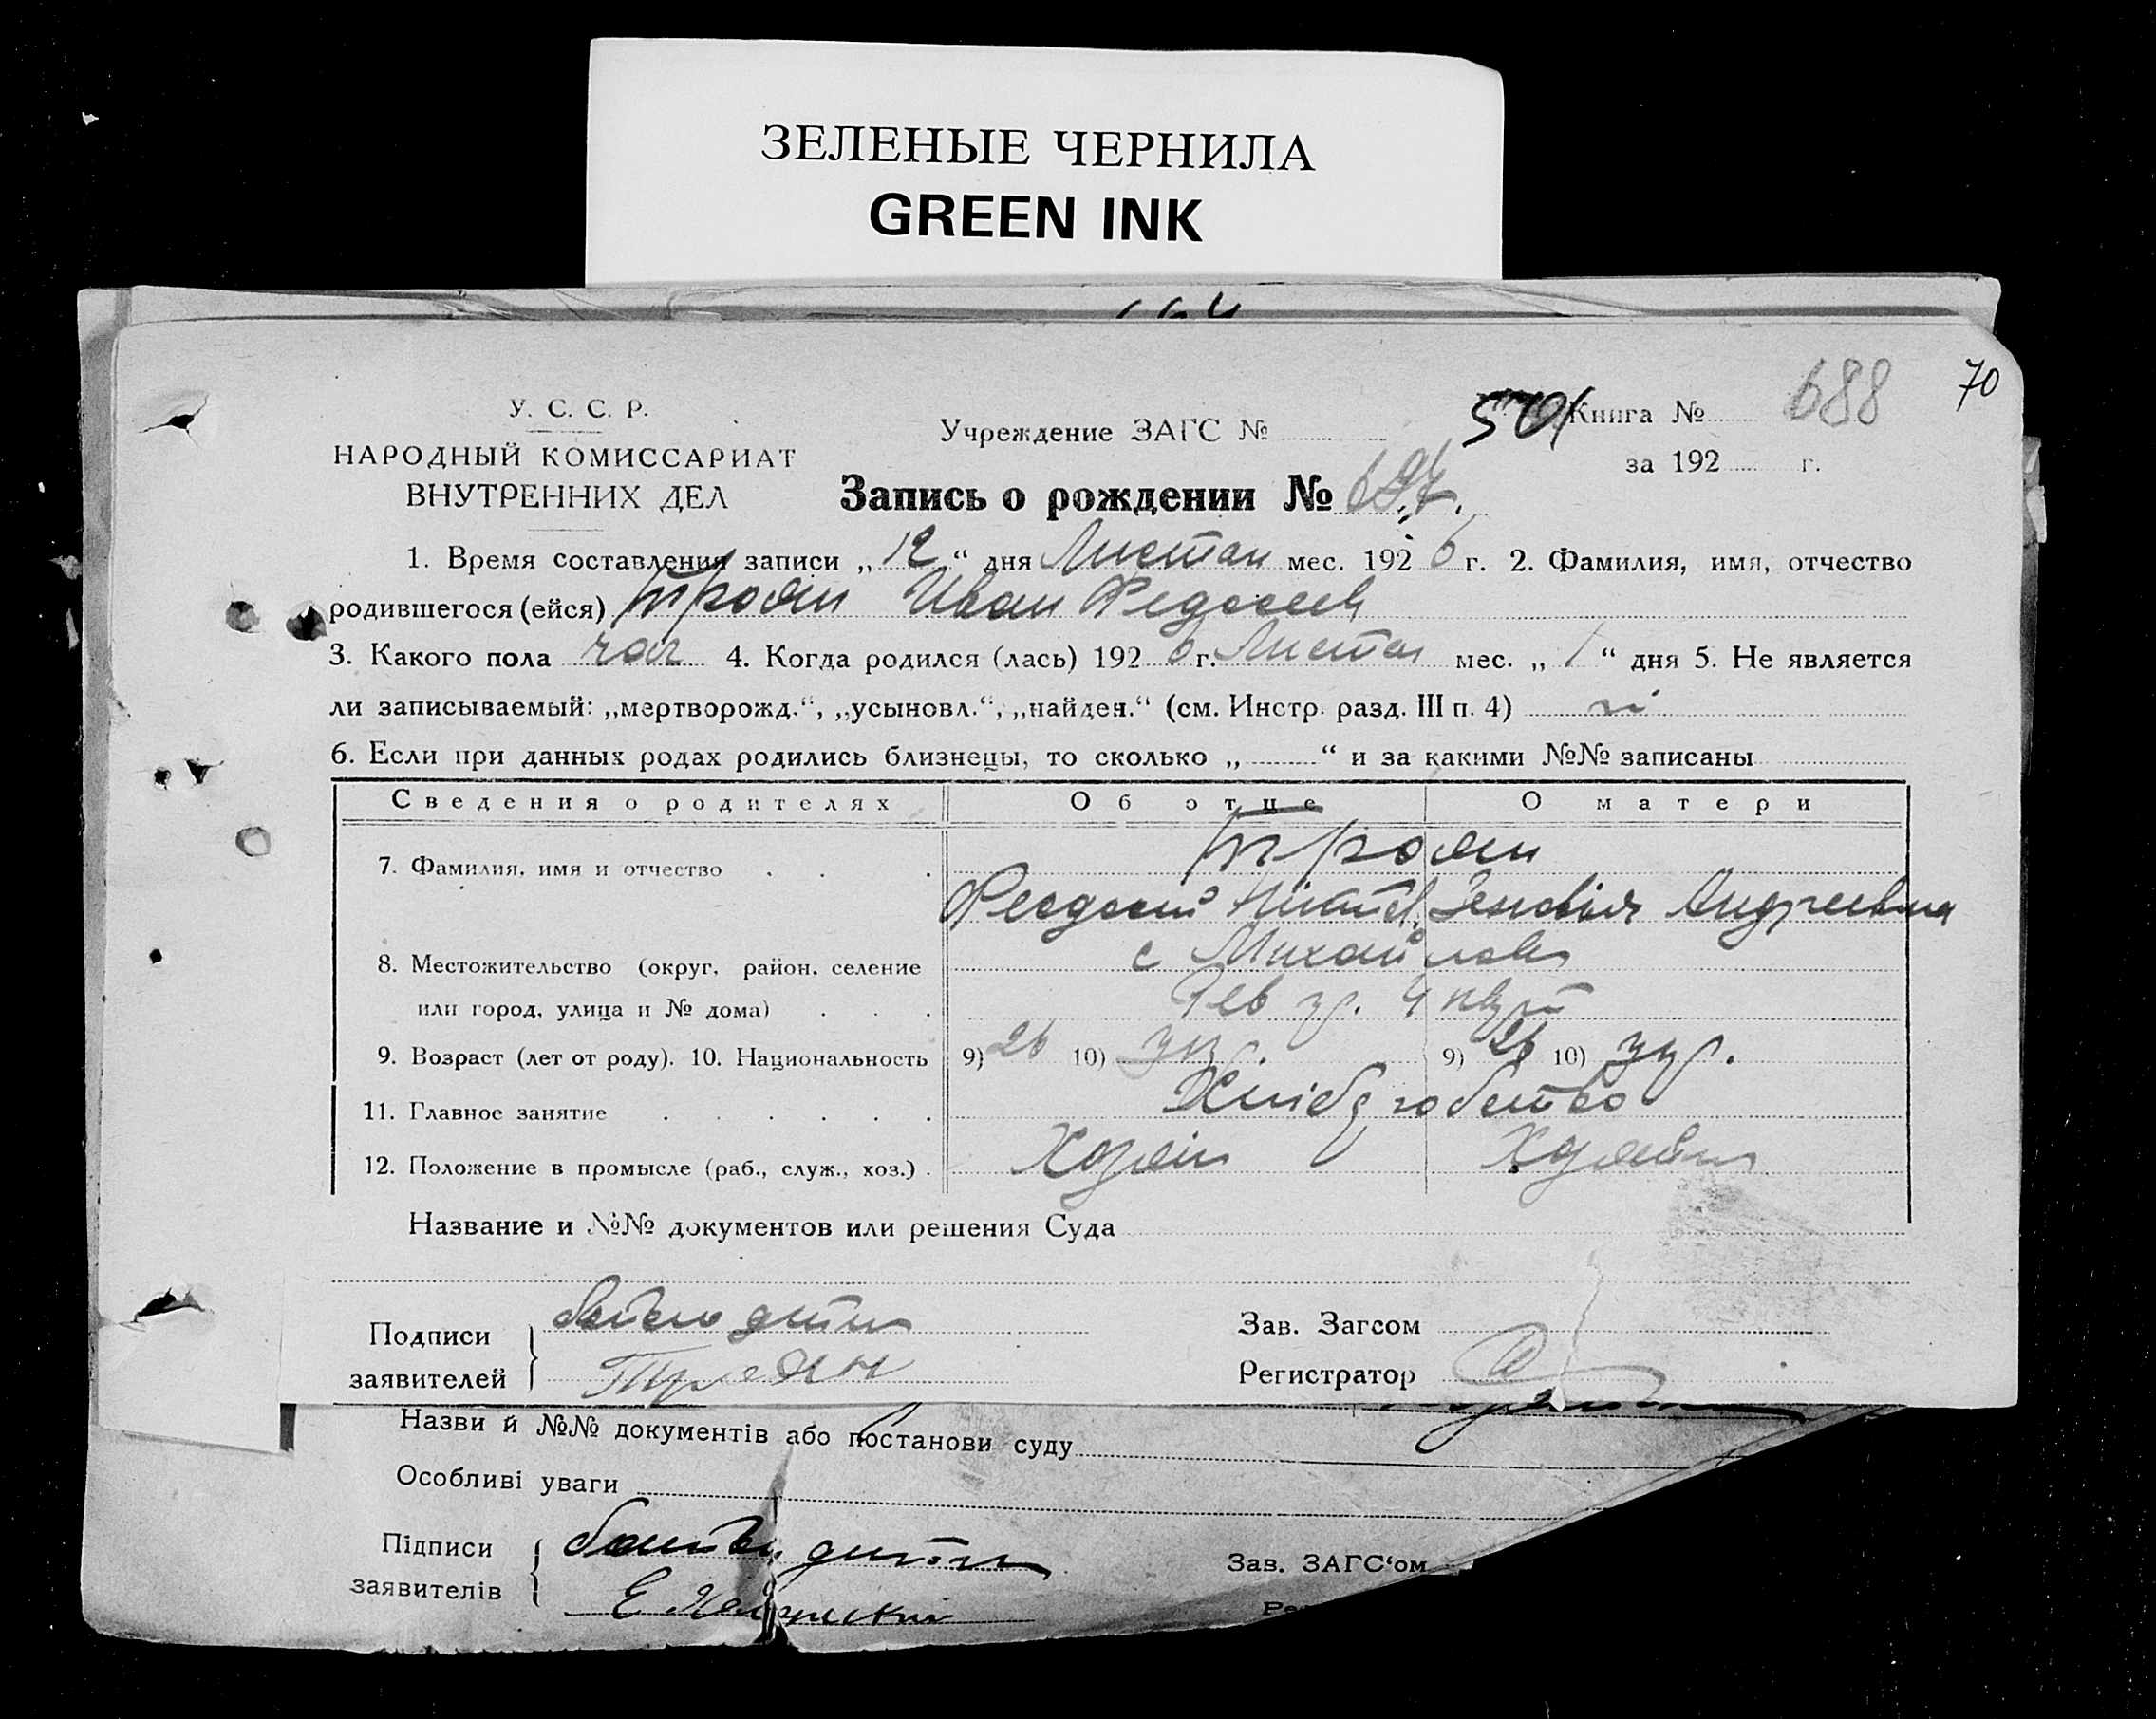 ЗЕЛЕНЫЕ ЧЕРНИЛА
GREEN INK
70
У. С. С. Р.
НАРОДНЫЙ КОМИССАРИАТ
ВНУТРЕННИХ ДЕЛ
Учреждение ЗАГС №
501 Книга № 688
за 192 г.
Запись о рождении № 697.
1. Время составления записи „12“ дня Листоп мес. 1926 г. 2. Фамилия, имя, отчество
родившегося (ейся) Троян Иван Федосеев
3. Какого пола чол 4. Когда родился (лась) 1926 г. Листоп мес. „1“ дня 5. Не является
ли записываемый: „мертворожд.“, „усыновл.“, „найден.“ (см. Инстр. разд. III п. 4) ні
6. Если при данных родах родились близнецы, то сколько „ “ и за какими №№ записаны
Сведения о родителях Об отце О матери
Троян
7. Фамилия, имя и отчество
Феодосий Зеновія Андреевна
8. Местожительство (округ, район, селение с Михайловка
или город, улица и № дома)
9. Возраст (лет от роду). 10. Национальность 9) 26 10) укр. 9) 26 10) укр.
11. Главное занятие Хлібороб ство
12. Положение в промысле (раб., служ., хоз.) Хозяін Хозяйка
Название и №№ документов или решения Суда
Подписи
заявителей
батько дитини
Троян
Зав. Загсом
Регистратор
Назви й №№ документів або постанови суду
Особливі уваги
Підписи
заявителів
батько дитини
Е
Зав. ЗАГС‘ом